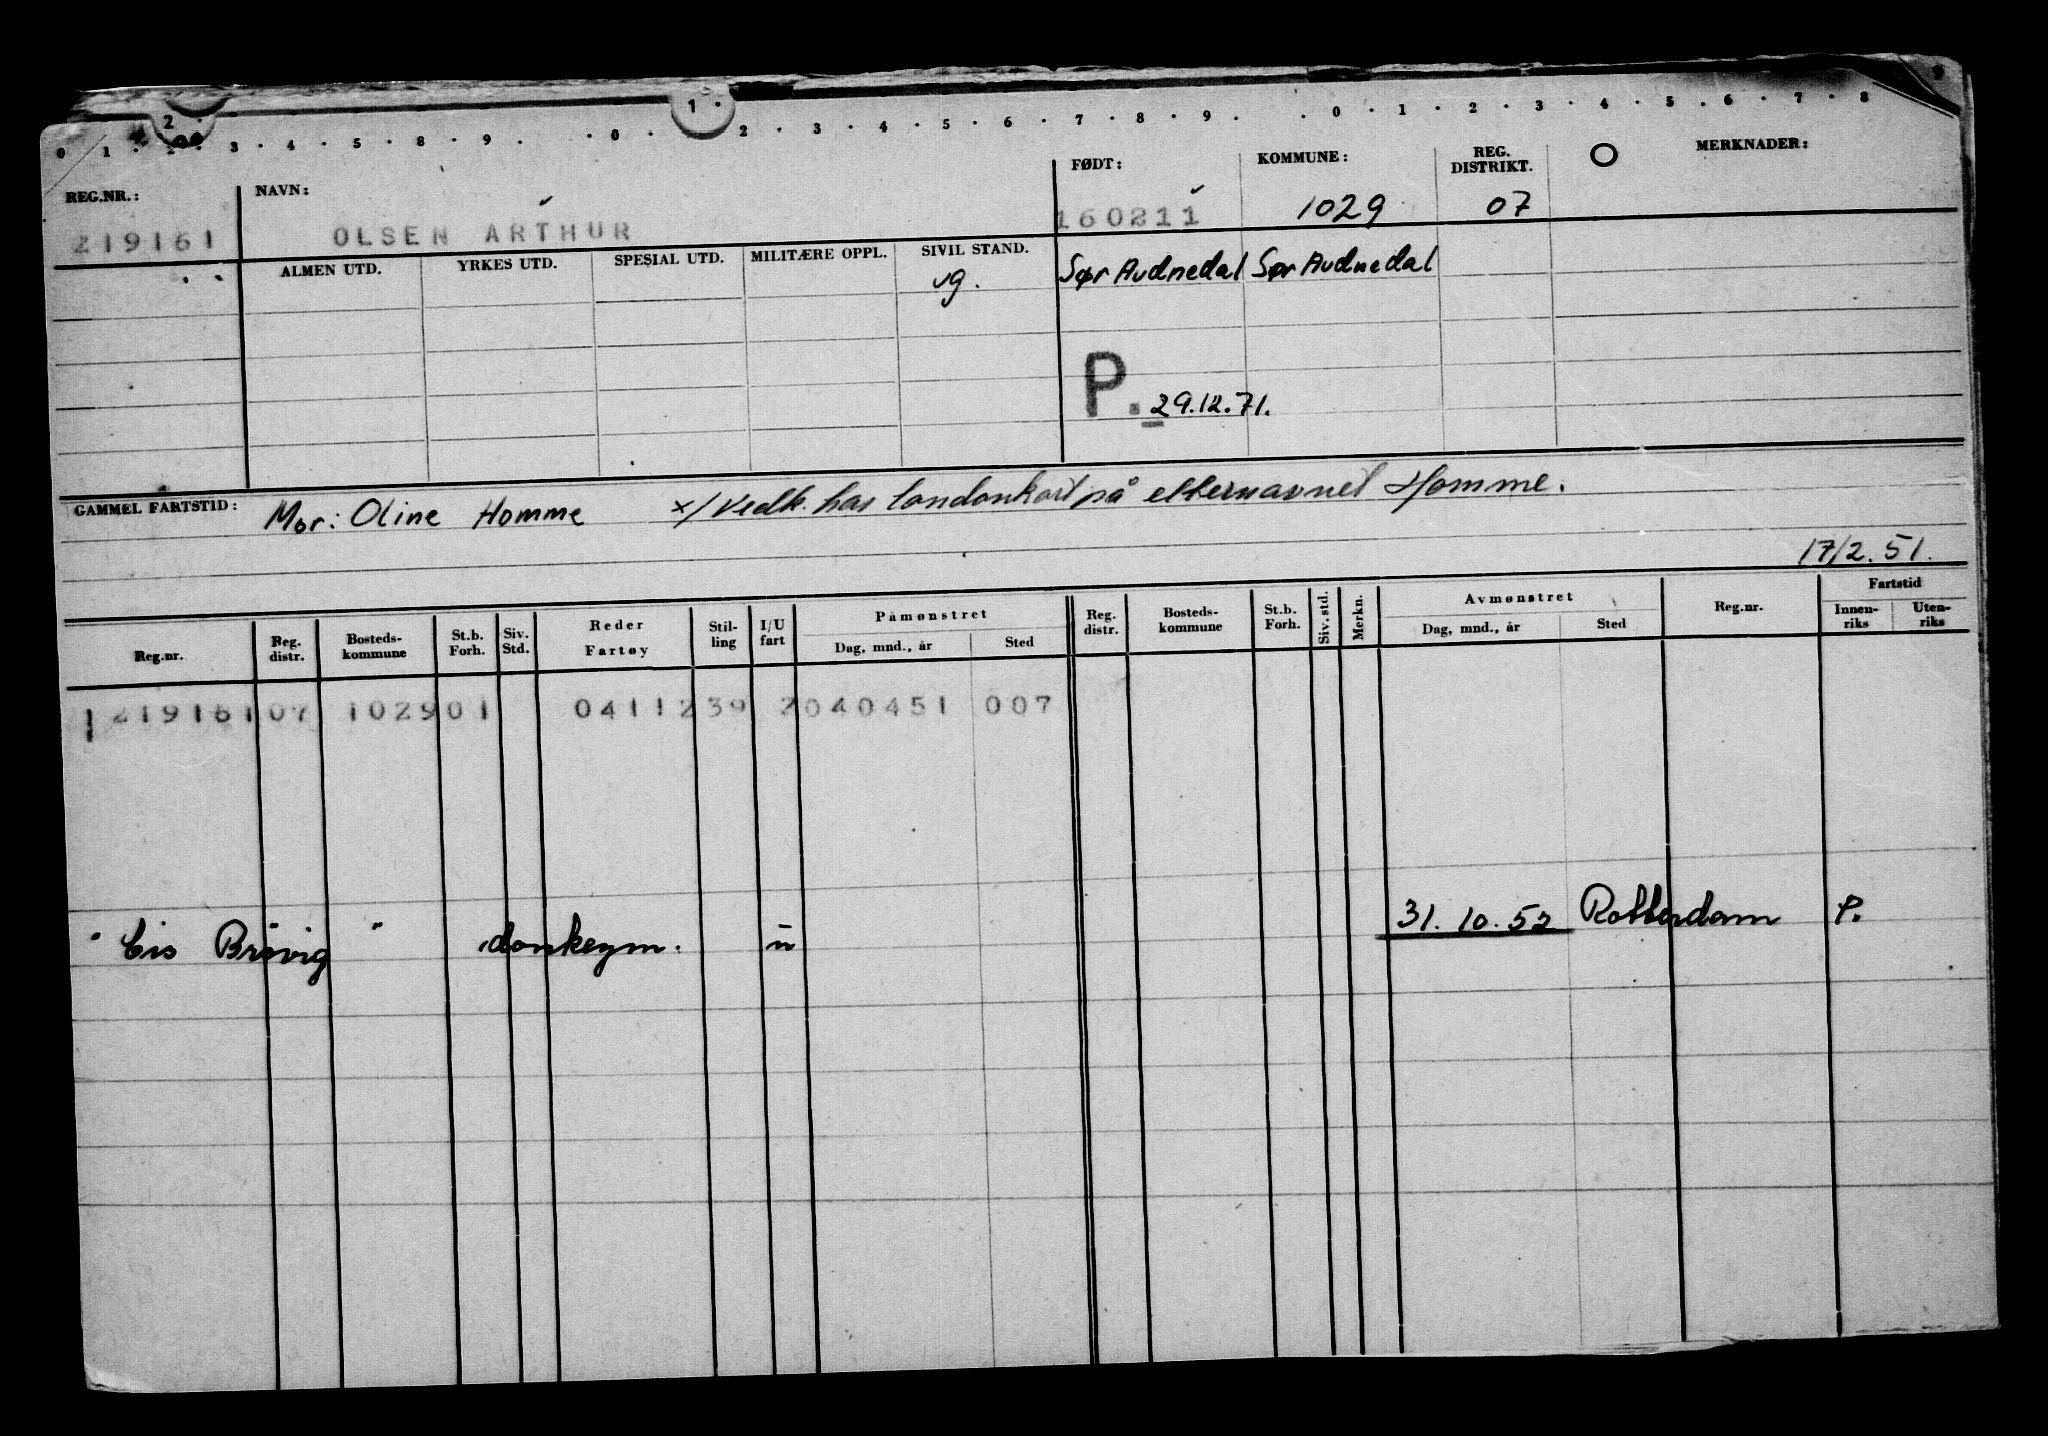 2 1 9
0 · 1 · 2 · 3 · 4 · 5 · 8 · 9 · · 0 · 2 · 3 · 4 · 5 · 6 · 7 · 8 · 9 · · 0 · 1 · 2 · 3 · 4 · 5 · 6 · 7 · 8
REG.NR.: NAVN: FØDT: KOMMUNE: REG. DISTRIKT. O MERKNADER:
219161 OLSEN ARTHUR 160211 1029 07
ALMEN UTD. YRKES UTD. SPESIAL UTD. MILITÆRE OPPL. SIVIL STAND. Sør Audnedal Sør Audnedal
ug.
P. 29.12.71.
GAMMEL FARTSTID: Mor: Oline Homme x/ Vedk. har londonkort på etternavnet Homme.
17/2.51.
Reg.nr. Reg. distr. Bosteds- kommune St.b. Forh. Siv. Std. Reder Fartøy Stil- ling I/U fart Påmønstret Dag, mnd., år Sted Reg. distr. Bosteds- kommune St.b. Forh. Siv. std. Merkn. Avmønstret Dag, mnd., år Sted Reg.nr. Fartstid Innen- riks Uten- riks
1 219161 07 1029 01 04112 39 2 040451 007
" Cis Brøvig " donkeym. u 31.10.52 Rotterdam P.